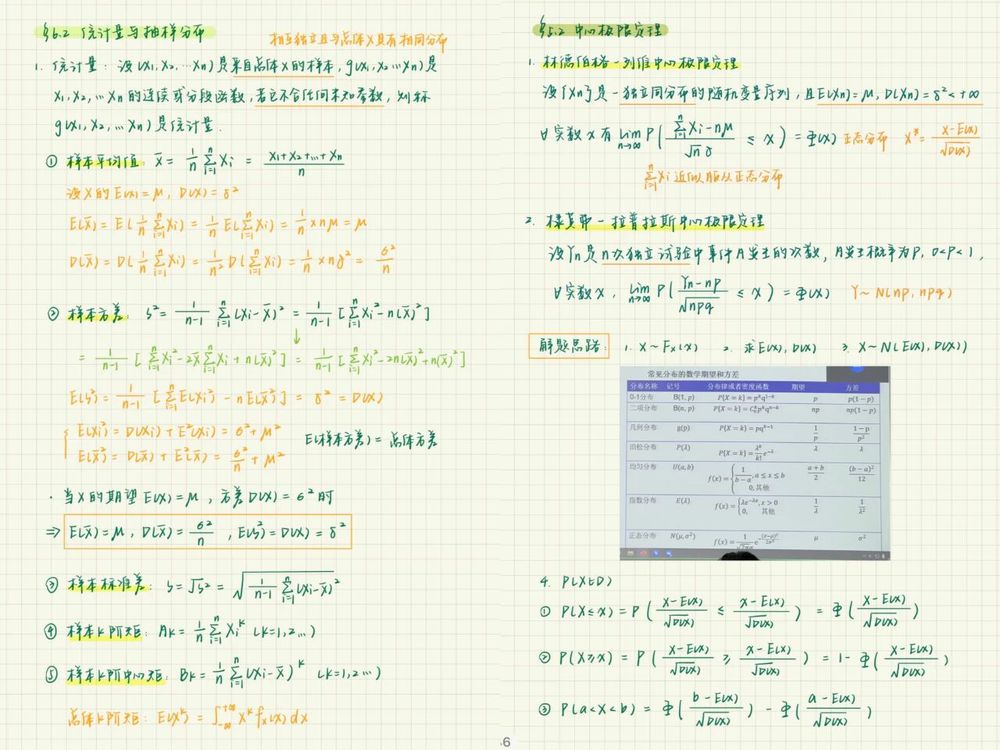 §6.2 统计量与抽样分布
相互独立且与总体X具有相同分布
1. 统计量：设(X1, X2, … Xn)是来自总体X的样本, g(X1, X2 … Xn)是
X1, X2, … Xn 的连续或分段函数, 若它不含任何未知参数, 则称
g(X1, X2, … Xn)是统计量.
① 样本平均值: X̄ = 1/n ∑(i=1→n) Xi = (X1+X2+…+Xn)/n
设X的E(X)=μ, D(X)=σ²
E(X̄) = E(1/n ∑(i=1→n) Xi) = 1/n E(∑(i=1→n) Xi) = 1/n × nμ = μ
D(X̄) = D(1/n ∑(i=1→n) Xi) = 1/n² D(∑(i=1→n) Xi) = 1/n × nσ² = σ²/n
② 样本方差: S² = 1/(n-1) ∑(i=1→n) (Xi-X̄)² = 1/(n-1) [∑(i=1→n) Xi² - n(X̄)²]
↓
= 1/(n-1) [∑(i=1→n) Xi² - 2X̄∑(i=1→n) Xi + n(X̄)²] = 1/(n-1) [∑(i=1→n) Xi² - 2n(X̄)² + n(X̄)²]
E(S²) = 1/(n-1) [∑(i=1→n) E(Xi²) - nE(X̄²)] = σ² = D(X)
E(Xi²) = D(Xi) + E²(Xi) = σ² + μ²
E(X̄²) = D(X̄) + E²(X̄) = σ²/n + μ²
E(样本方差) = 总体方差
· 当X的期望E(X)=μ, 方差D(X)=σ²时
⇒ E(X̄)=μ, D(X̄)=σ²/n, E(S²)=D(X)=σ²
③ 样本标准差: S = √S² = √(1/(n-1) ∑(i=1→n) (Xi-X̄)²)
④ 样本K阶矩: AK = 1/n ∑(i=1→n) Xi^K (K=1,2…)
⑤ 样本K阶中心矩: BK = 1/n ∑(i=1→n) (Xi-X̄)^K (K=1,2…)
总体K阶矩: E(X^K) = ∫(-∞→+∞) x^K fX(x) dx
§5.2 中心极限定理
1. 林德伯格-列维中心极限定理
设{Xn}是一独立同分布的随机变量序列, 且E(Xn)=μ, D(Xn)=σ²<+∞
∀实数x有 lim(n→∞) P((∑(i=1→n) Xi-nμ)/(√n σ) ≤ x) = Φ(x) 正态分布 X* = (X-E(X))/√D(X)
∑(i=1→n) Xi 近似服从正态分布
2. 棣莫弗-拉普拉斯中心极限定理
设Yn是n次独立试验中事件A发生的次数, A发生概率为P, 0<P<1,
∀实数x, lim(n→∞) P((Yn-np)/√npq ≤ x) = Φ(x) Y~N(np, npq)
解题思路: 1. X~Fx(x) 2. 求E(X), D(X) 3. X~N(E(X), D(X))
常见分布的数学期望和方差
分布名称 记号 分布律或者密度函数 期望 方差
0-1分布 B(1, p) P{X = k} = p^k q^(1-k) p p(1-p)
二项分布 B(n, p) P{X = k} = C_n^k p^k q^(n-k) np np(1-p)
几何分布 g(p) P{X = k} = pq^(k-1) 1/p (1-p)/p²
泊松分布 P(λ) P{X = k} = λ^k/k! e^(-λ) λ λ
均匀分布 U(a, b) f(x) = {1/(b-a), a ≤ x ≤ b; 0, 其他 (a+b)/2 (b-a)²/12
指数分布 E(λ) f(x) = {λe^(-λx), x > 0; 0, 其他 1/λ 1/λ²
正态分布 N(μ, σ²) f(x) = 1/(√2π σ) e^(-(x-μ)²/2σ²) μ σ²
4. P(X∈D)
① P(X≤x) = P((X-E(X))/√D(X) ≤ (x-E(X))/√D(X)) = Φ((x-E(X))/√D(X))
② P(X≥x) = P((X-E(X))/√D(X) ≥ (x-E(X))/√D(X)) = 1-Φ((x-E(X))/√D(X))
③ P(a<X<b) = Φ((b-E(X))/√D(X)) - Φ((a-E(X))/√D(X))